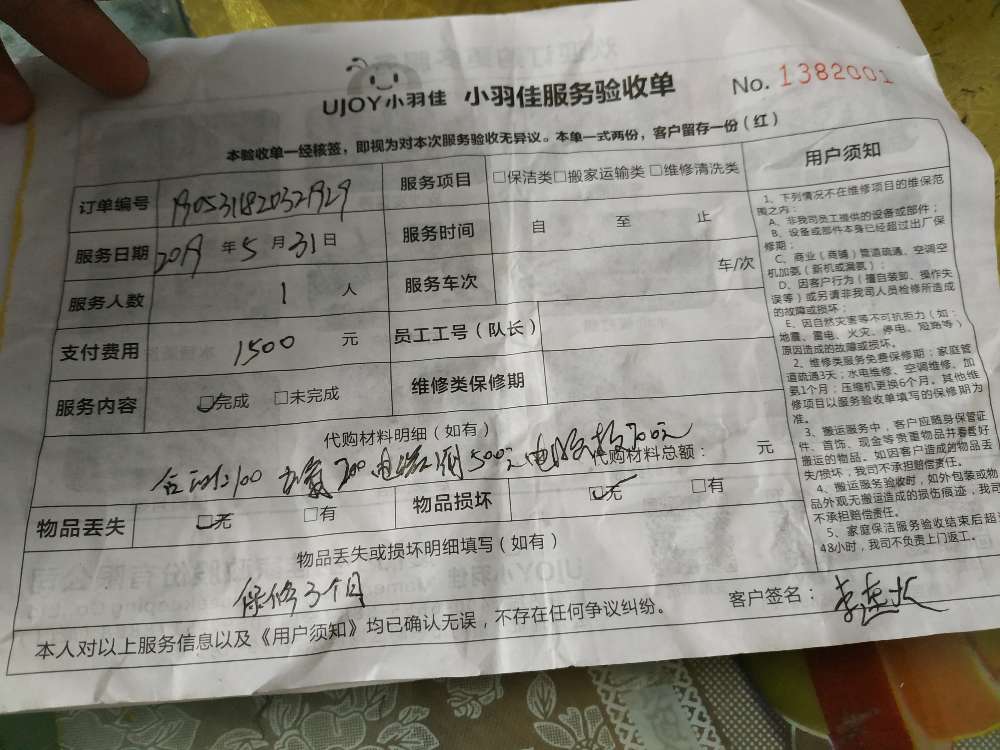 UJOY小羽佳 小羽佳服务验收单
No. 1382001
本验收单一经核签，即视为对本次服务验收无异议。本单一式两份，客户留存一份（红）
订单编号
服务项目 □保洁类□搬家运输类 □维修清洗类
服务日期 2019 年 5 月 31 日
服务时间 自 至 止
服务人数 1 人
服务车次 车/次
支付费用 1500 元
员工工号（队长）
服务内容 □完成 □未完成
维修类保修期
代购材料明细（如有）
代购材料总额： 元
物品丢失 □无 □有
物品损坏 □无 □有
物品丢失或损坏明细填写（如有）
保修3个月
本人对以上服务信息以及《用户须知》均已确认无误，不存在任何争议纠纷。
客户签名：
用户须知
1、下列情况不在维修项目的维保范
围之内：
A、非我司员工提供的设备或部件；
B、设备或部件本身已经超过出厂保
修期；
C、商业（商铺）管道疏通、空调空
机加氨（新机或漏氨）；
D、因客户行为（擅自装卸、操作失
误等）或另请非我司人员检修所造成
的故障或损坏；
E、因自然灾害等不可抗拒力（如：
地震、雷电、火灾、停电、短路等）
原因造成的故障或损坏。
2、维修类服务免费保修期：家庭管
道疏通3天；水电维修、空调维修、加
氨1个月；压缩机更换6个月。其他维
修项目以服务验收单填写的保修期为
准。
3、搬运服务中，客户应随身保管证
件、首饰、现金等贵重物品并看管好
搬运的物品。如因客户造成的物品丢
失/损坏，我司不承担赔偿责任。
4、搬运服务验收时，如外包装或物
品外观无搬运造成的损伤痕迹，我司
不承担赔偿责任。
5、家庭保洁服务验收结束后超过
48小时，我司不负责上门返工。